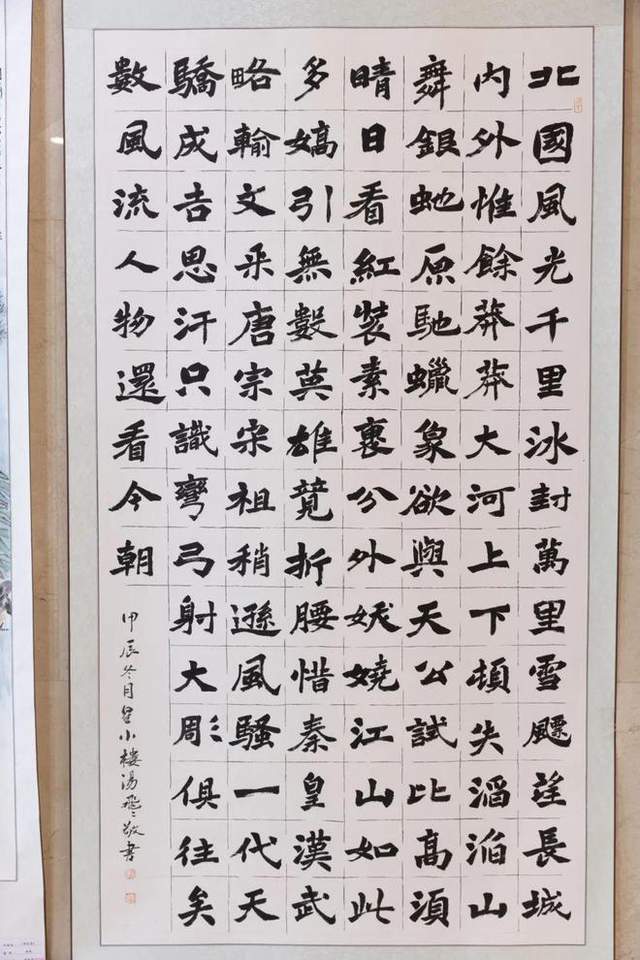 北國風光千里冰封萬里雪飄望長城
內外惟餘莽莽大河上下頓失滔滔山
舞銀虵原馳蠟象欲與天公試比高須
晴日看紅裝素裹分外妖嬈江山如此
多嬌引無數英雄竟折腰惜秦皇漢武
略輸文采唐宗宋祖稍遜風騷一代天
驕成吉思汗只識彎弓射大彫俱往矣
數風流人物還看今朝
甲辰冬月小樓湯飛敬書